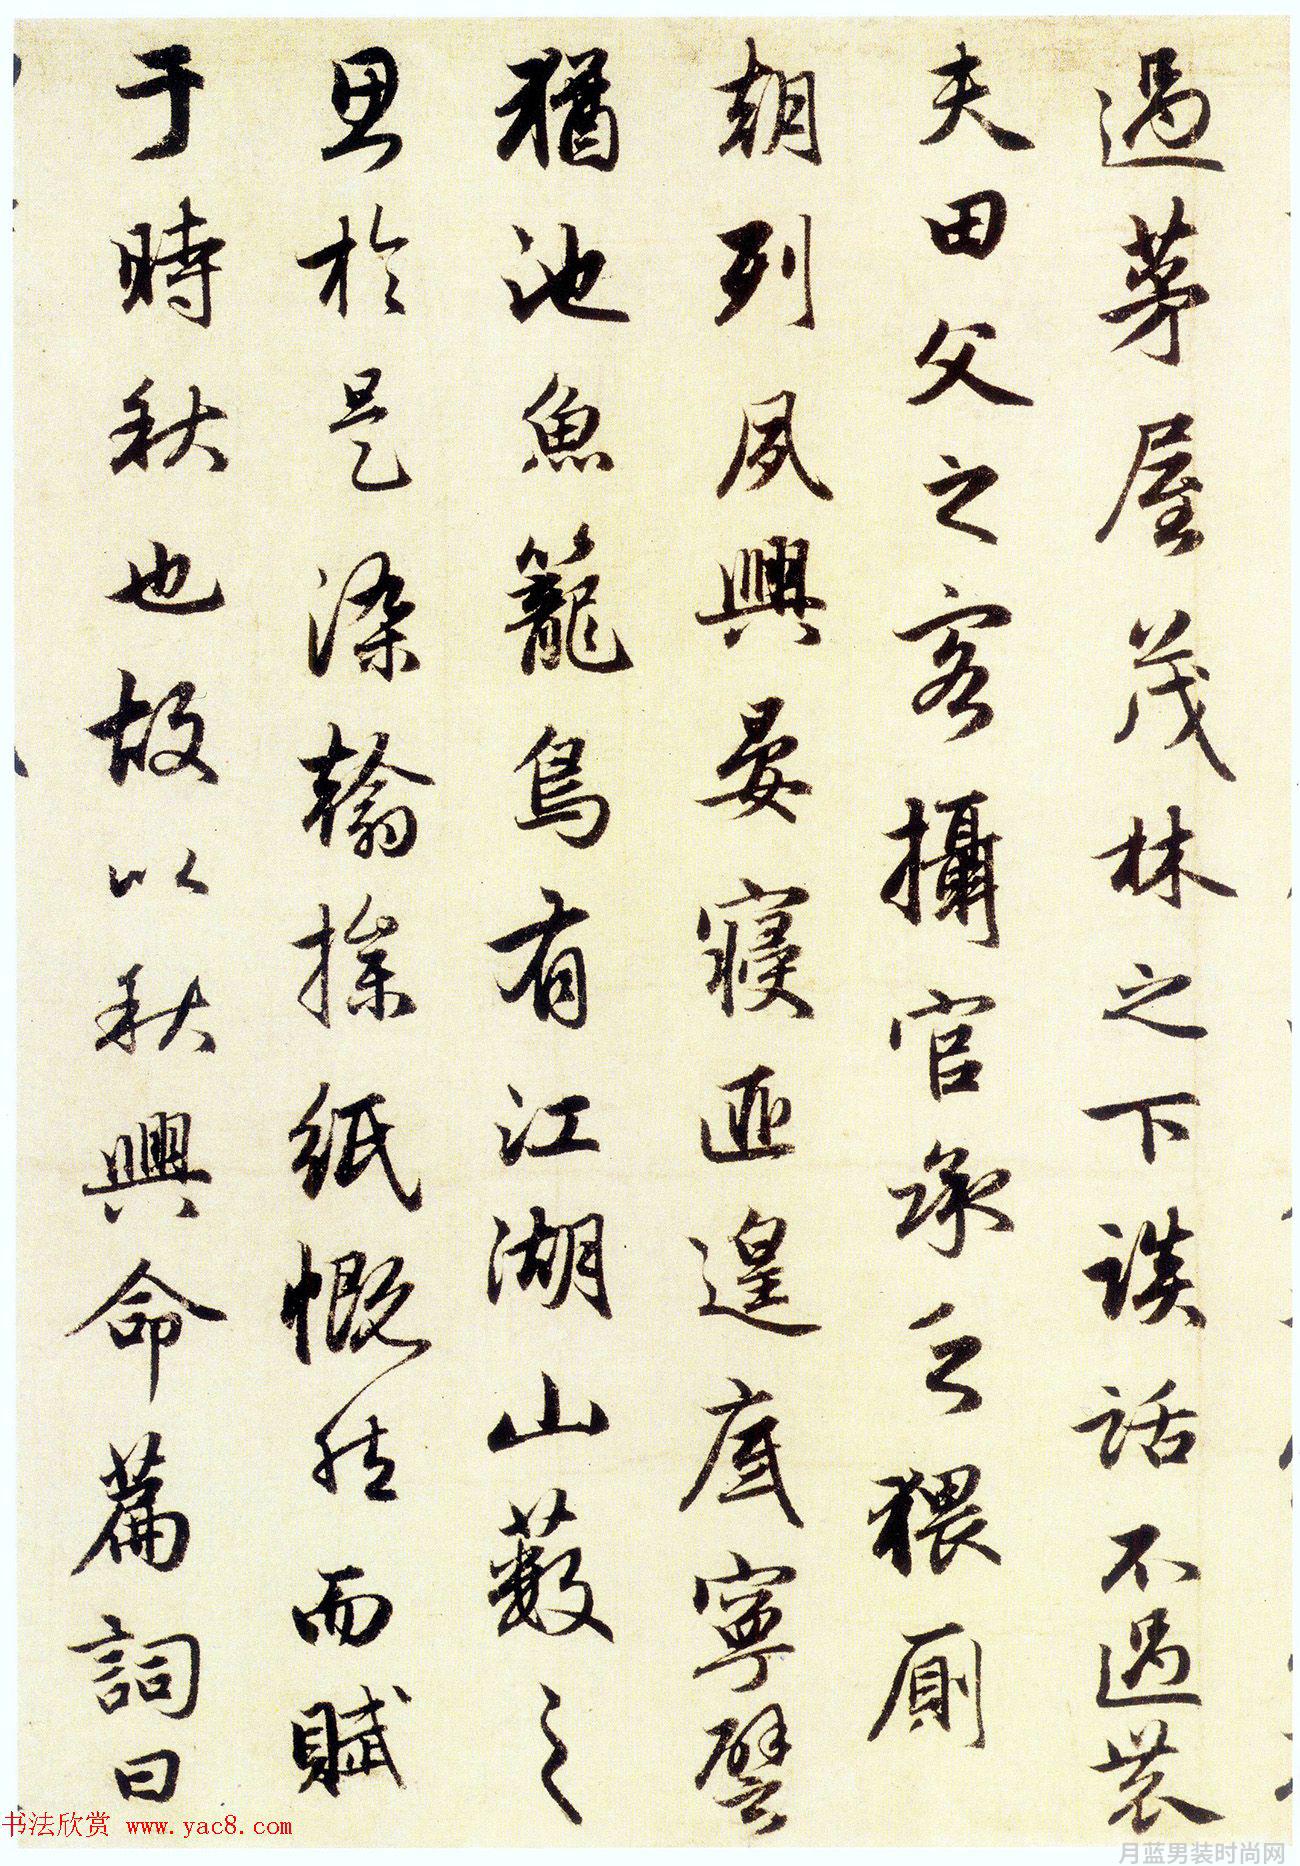 過茅屋茂林之下談話不過農
夫田父之客攝官承乏猥廁
朝列夙興晏寢匪遑底寧譬
猶池魚籠鳥有江湖山藪之
思於是染翰操紙慨然而賦
于時秋也故以秋興命篇詞曰
书法欣赏 www.yac8.com
月蓝男装时尚网